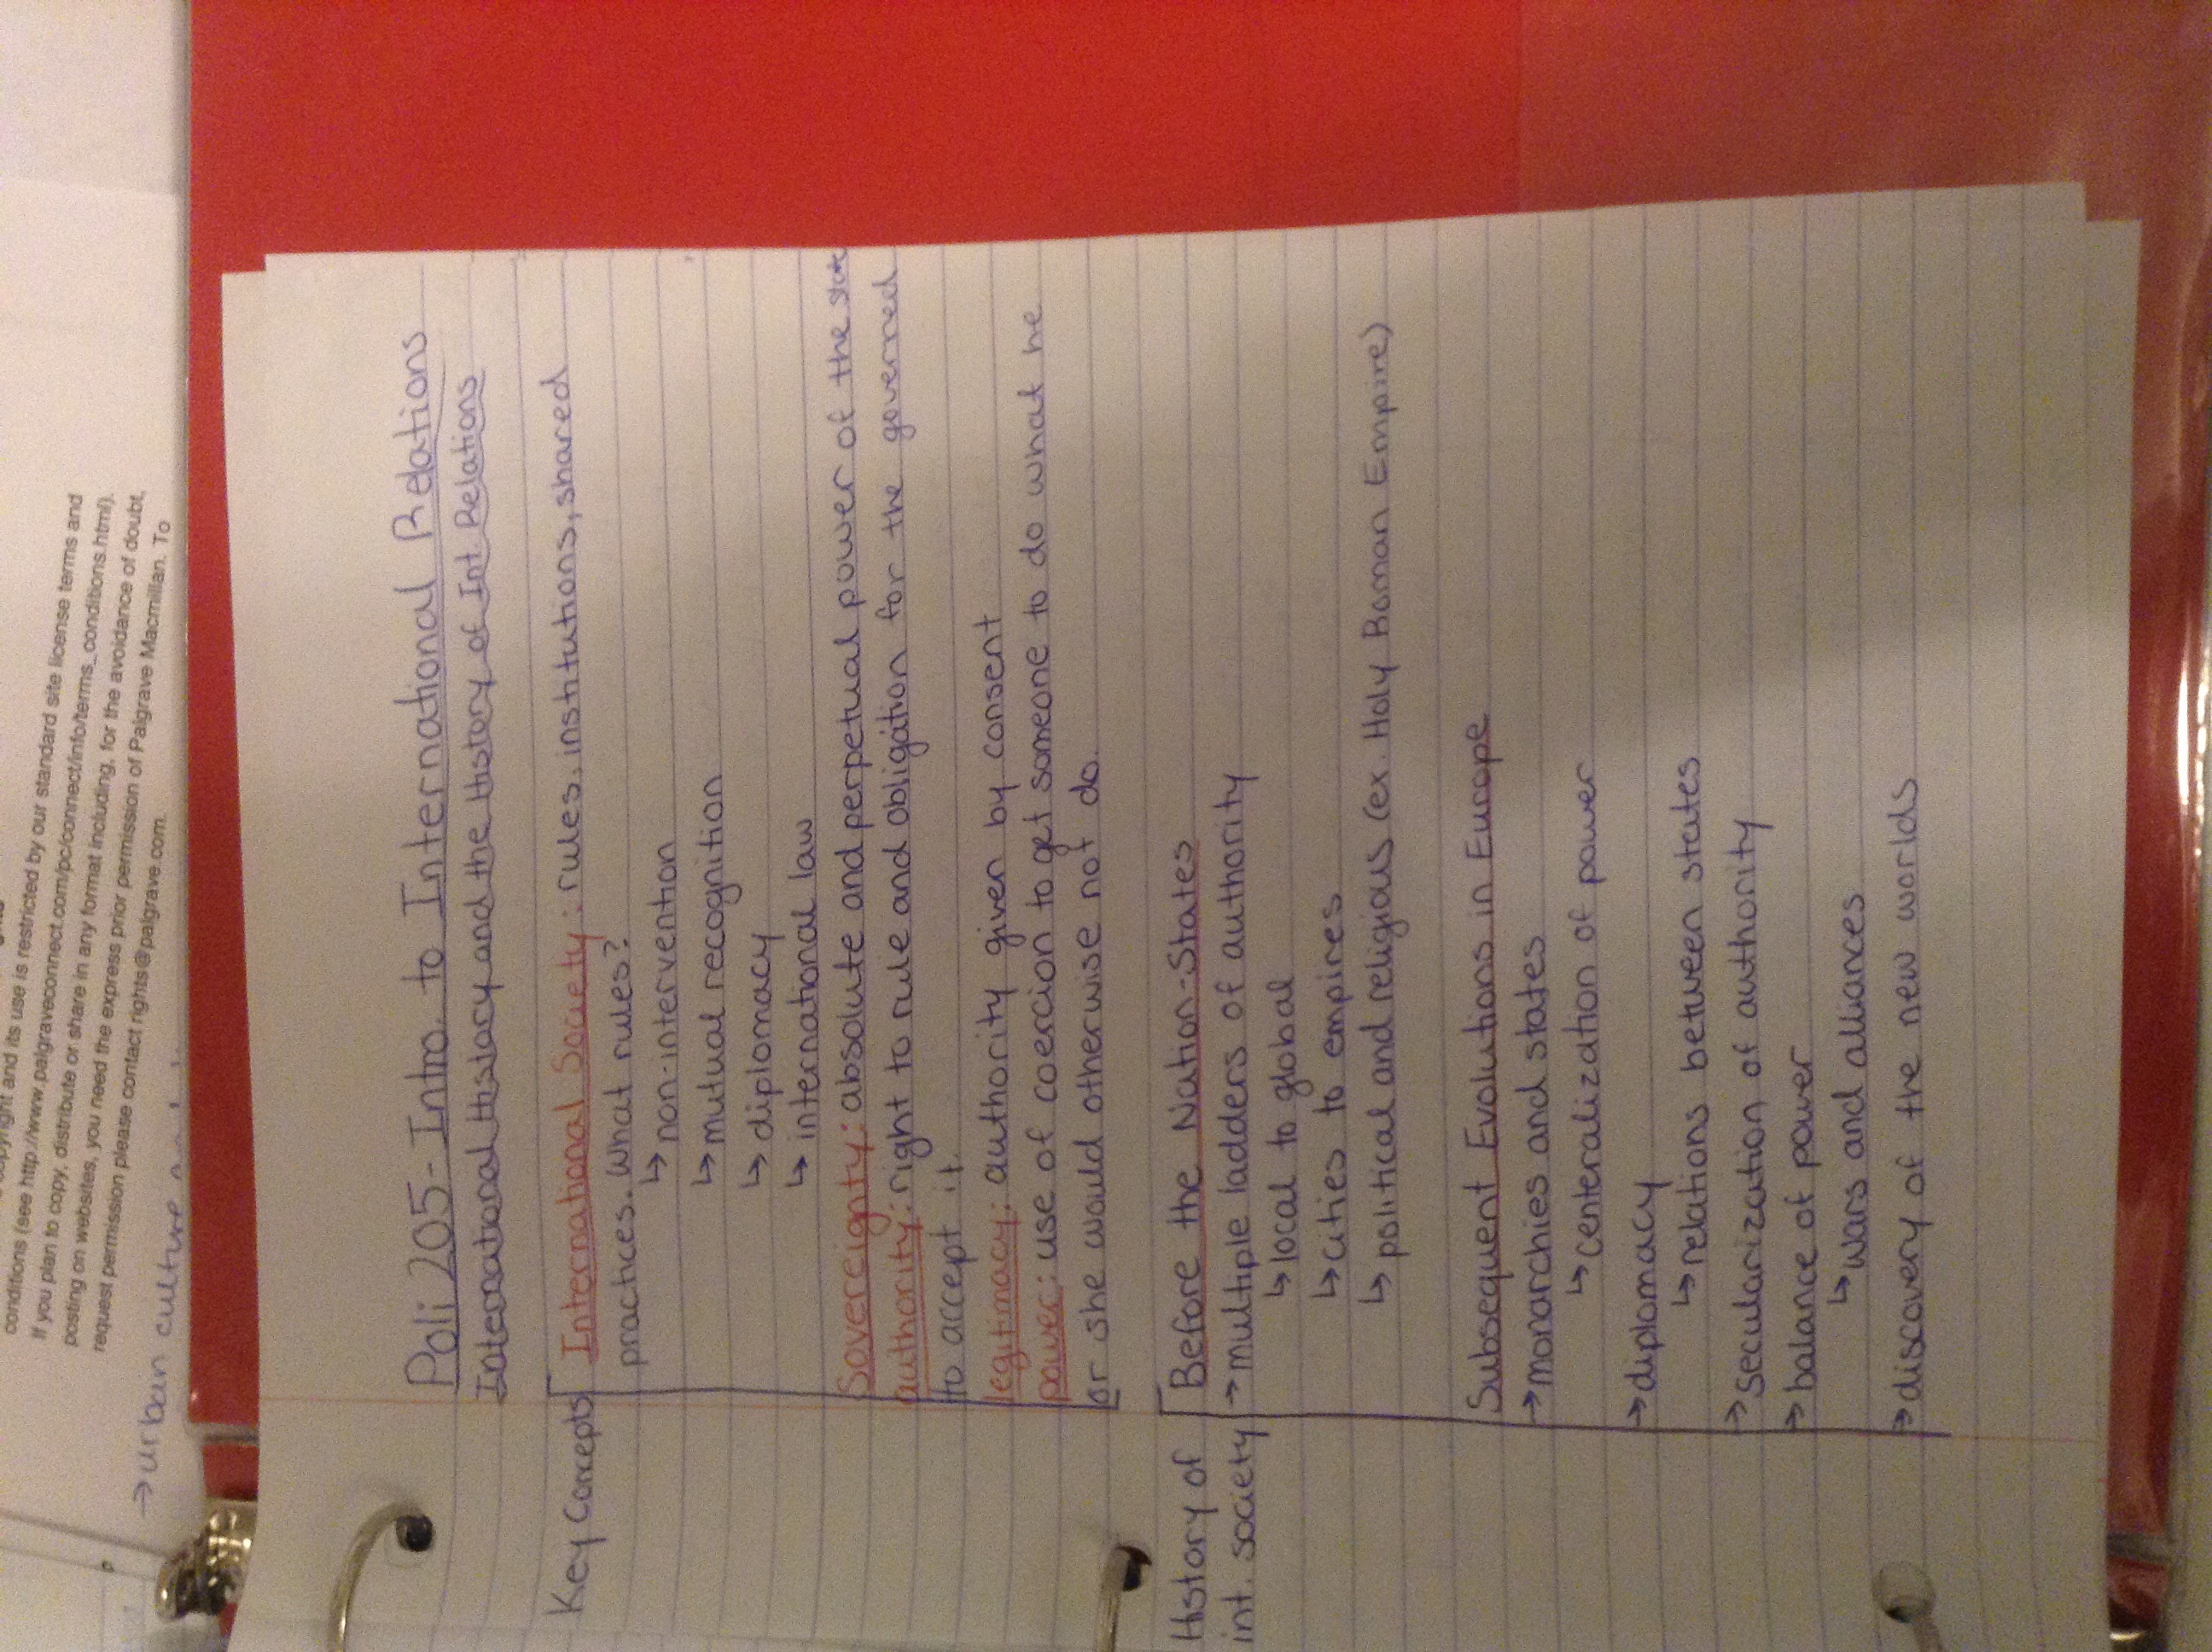 copyright and its use is restricted by our standard site license terms and
conditions (see http://www.palgraveconnect.com/pc/connect/info/terms_conditions.html).
If you plan to copy, distribute or share in any format including, for the avoidance of doubt,
posting on websites, you need the express prior permission of Palgrave Macmillan. To
request permission please contact rights@palgrave.com.
→ urban culture
Poli 205 - Intro. to International Relations
International History and the History of Int Relations
Key Concepts
International Society: rules, institutions, shared
practices. What rules?
↳ non-intervention
↳ mutual recognition
↳ diplomacy
↳ international law
Sovereignty: absolute and perpetual power of the state
authority: right to rule and obligation for the governed
to accept it.
legitimacy: authority given by consent
power: use of coercion to get someone to do what he
or she would otherwise not do.
History of
int. society
Before the Nation-States
→ multiple ladders of authority
↳ local to global
↳ cities to empires
↳ political and religious (ex. Holy Roman Empire)
Subsequent Evolutions in Europe
→ monarchies and states
↳ centeralization of power
→ diplomacy
↳ relations between states
→ secularization of authority
→ balance of power
↳ wars and alliances
→ discovery of the new worlds